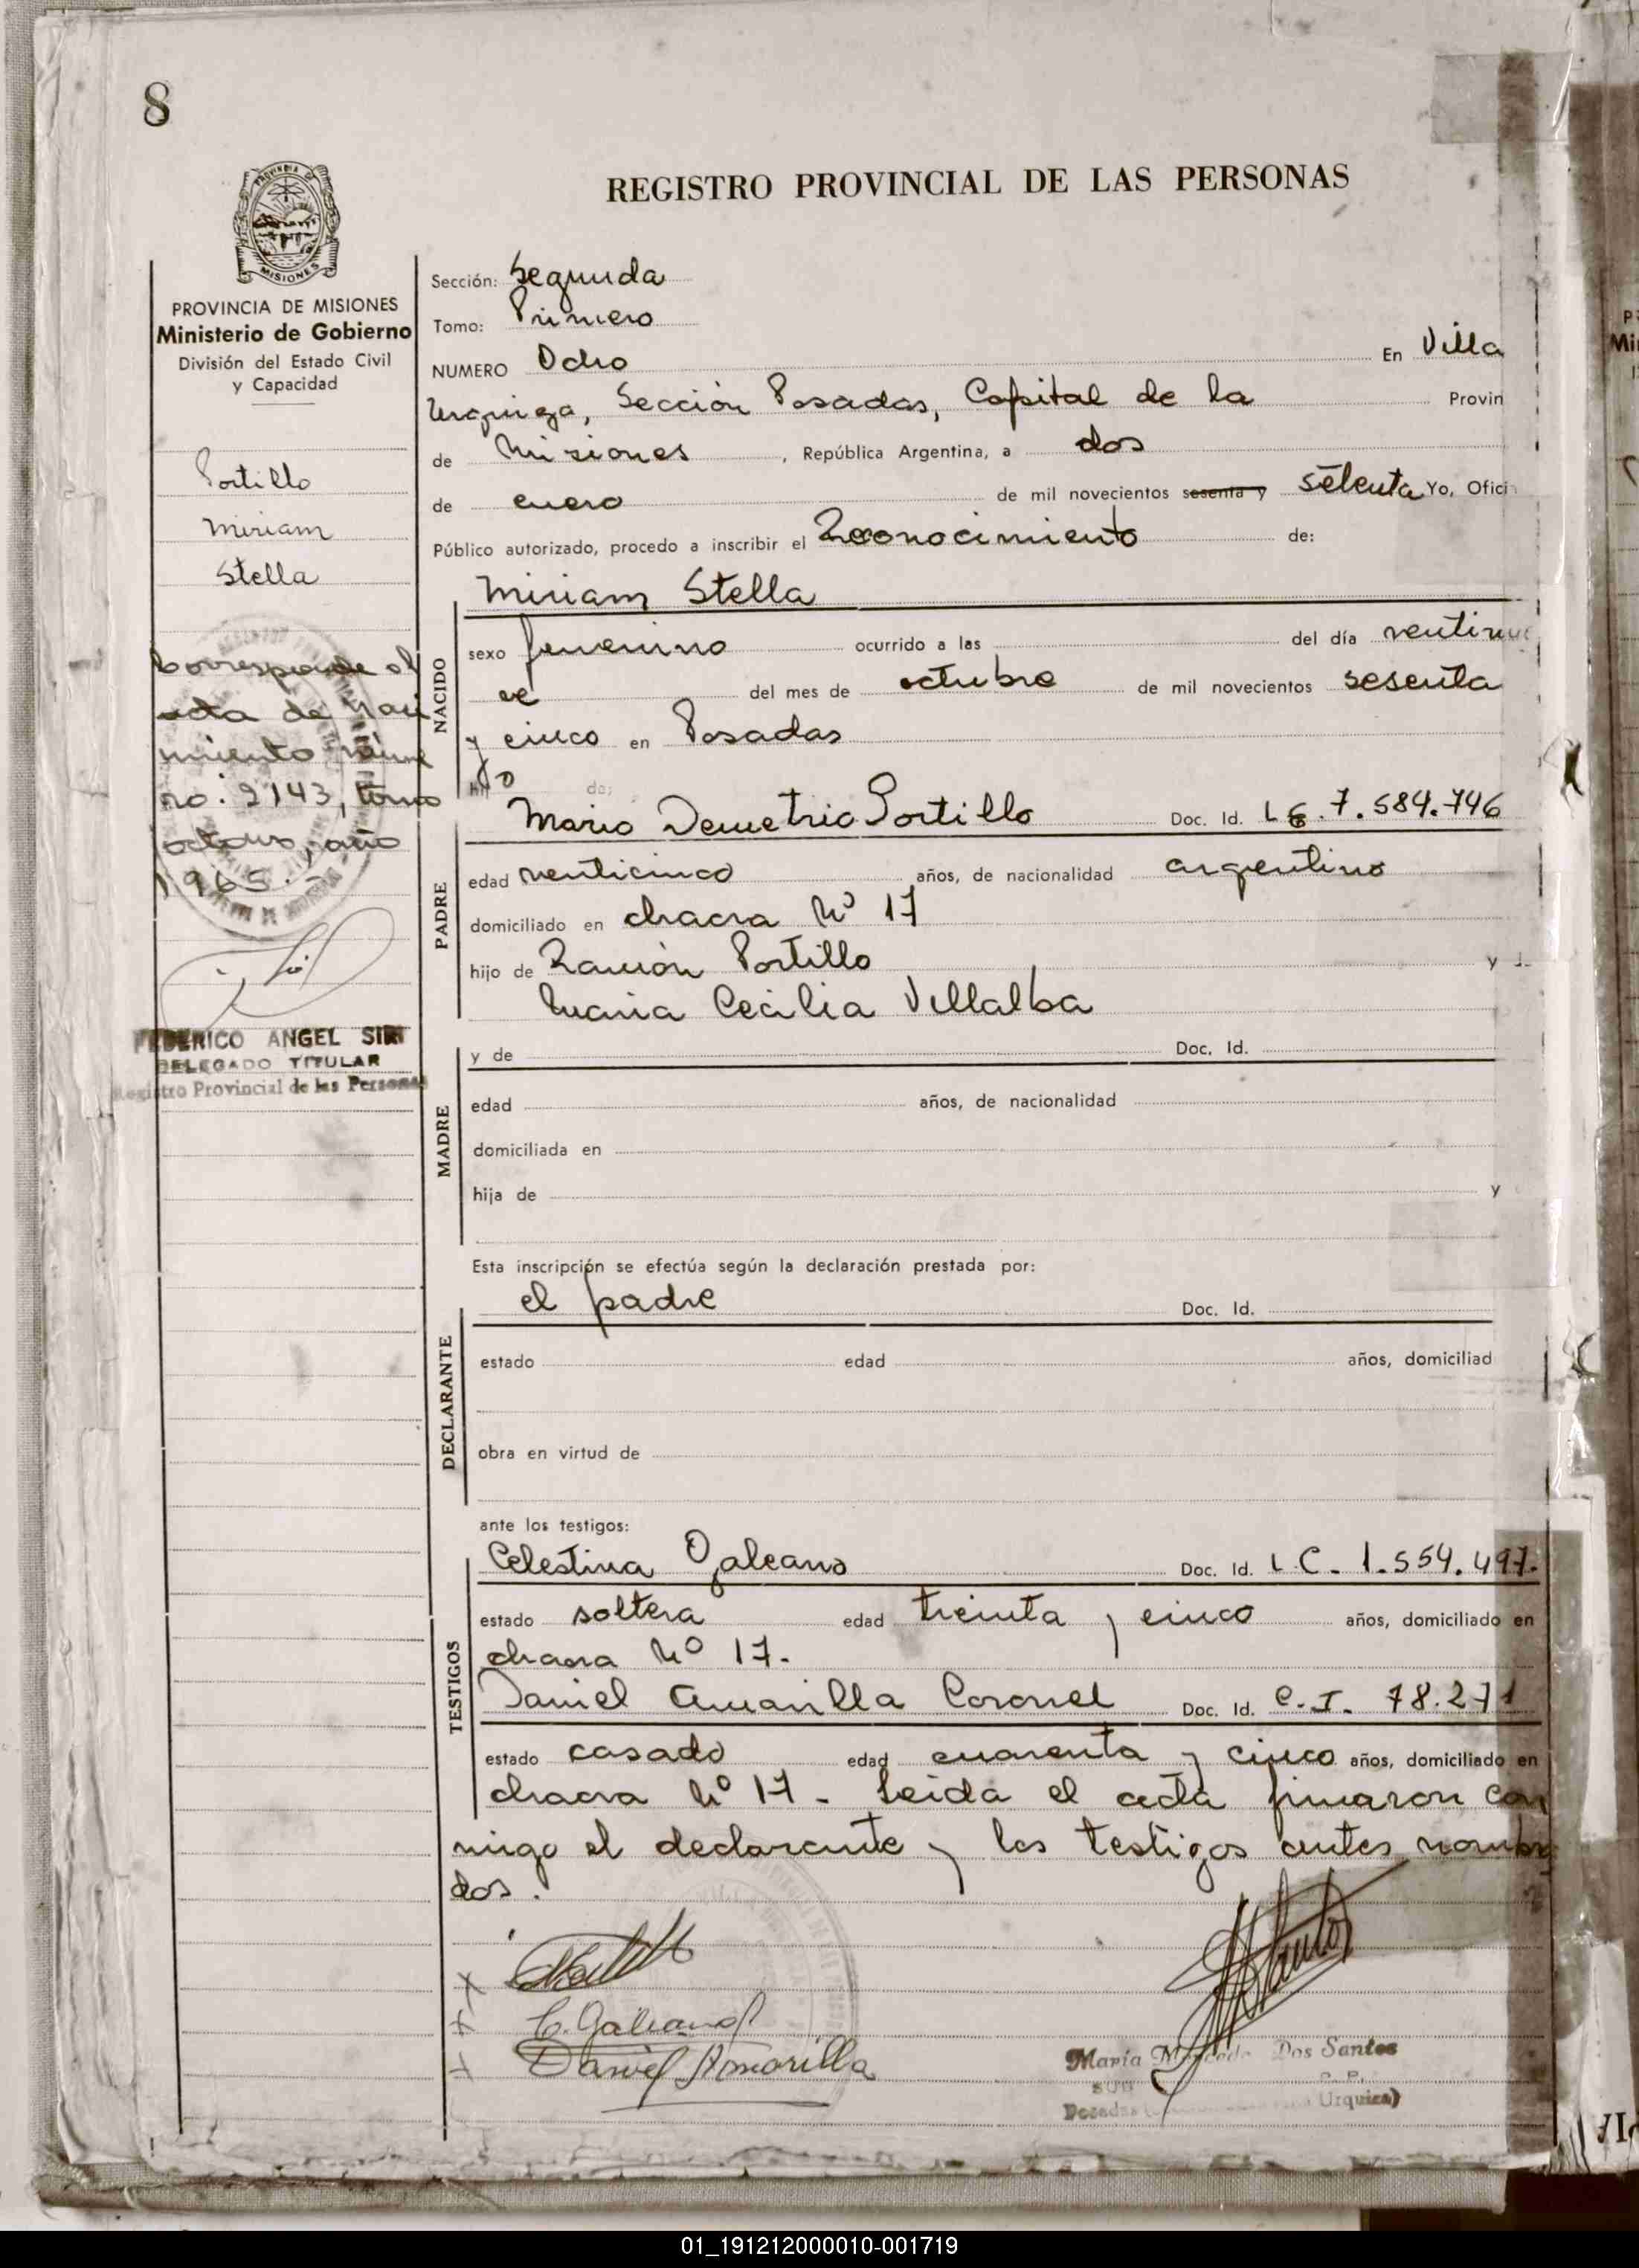 8
REGISTRO PROVINCIAL DE LAS PERSONAS
MISIONES
PROVINCIA DE MISIONES
Ministerio de Gobierno
División del Estado Civil
y Capacidad
Portillo
Miriam
Stella
Corresponde al
acta de naci
miento núme
ro: 2143, tomo
octavo, año
1965.-
FEDERICO ANGEL SIRI
DELEGADO TITULAR
Registro Provincial de las Personas
Sección: Segunda
Tomo: Primero
NUMERO Ocho En Villa
Urquiza, Sección Posadas, Capital de la Provin
de Misiones, República Argentina, a dos
de enero de mil novecientos sesenta y setenta Yo, Ofici
Público autorizado, procedo a inscribir el Reconocimiento de:
Miriam Stella
NACIDO
sexo femenino ocurrido a las del día ventinu
ve del mes de octubre de mil novecientos sesenta
y cinco en Posadas
hijo de:
PADRE
Mario Demetrio Portillo Doc. Id. L E. 7.584.746
edad venticinco años, de nacionalidad argentino
domiciliado en chacra Nº 17
hijo de Ramón Portillo y
Maria Cecilia Villalba
MADRE
y de Doc. Id.
edad años, de nacionalidad
domiciliada en
hija de y
Esta inscripción se efectúa según la declaración prestada por:
DECLARANTE
el padre Doc. Id.
estado edad años, domiciliad
obra en virtud de
ante los testigos:
TESTIGOS
Celestina Galeano Doc. Id. L C. 1.554.497.
estado soltera edad treinta y cinco años, domiciliado en
chacra Nº 17.
Daniel Amarilla Coronel Doc. Id. C.I. 78.271
estado casado edad cuarenta y cinco años, domiciliado en
chacra Nº 17 - Leida el acta firmaron con
migo el declarante y los testigos antes nombra
dos.
C. Galeano
Daniel Amarilla
Maria Dos Santos
Posadas Urquiza)
01_191212000010-001719